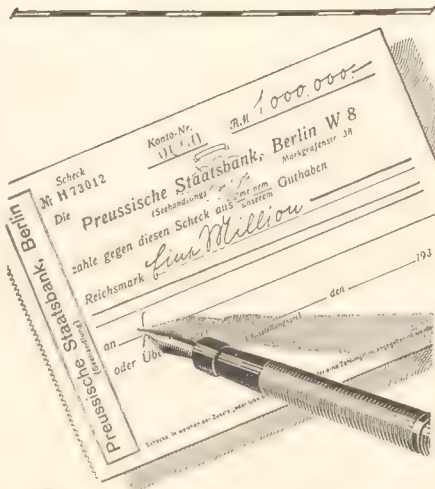 Preussische Staatsbank, Berlin
(Seehandlung)
Scheck
Nr H 73012
Konto-Nr.
RM 1000.000.-
Die Preussische Staatsbank, Berlin W 8
(Seehandlung) Markgrafenstr 38
zahle gegen diesen Scheck aus unserem Guthaben
Reichsmark Eine Million
den 193
an
(Ausstellungsort)
oder Übe